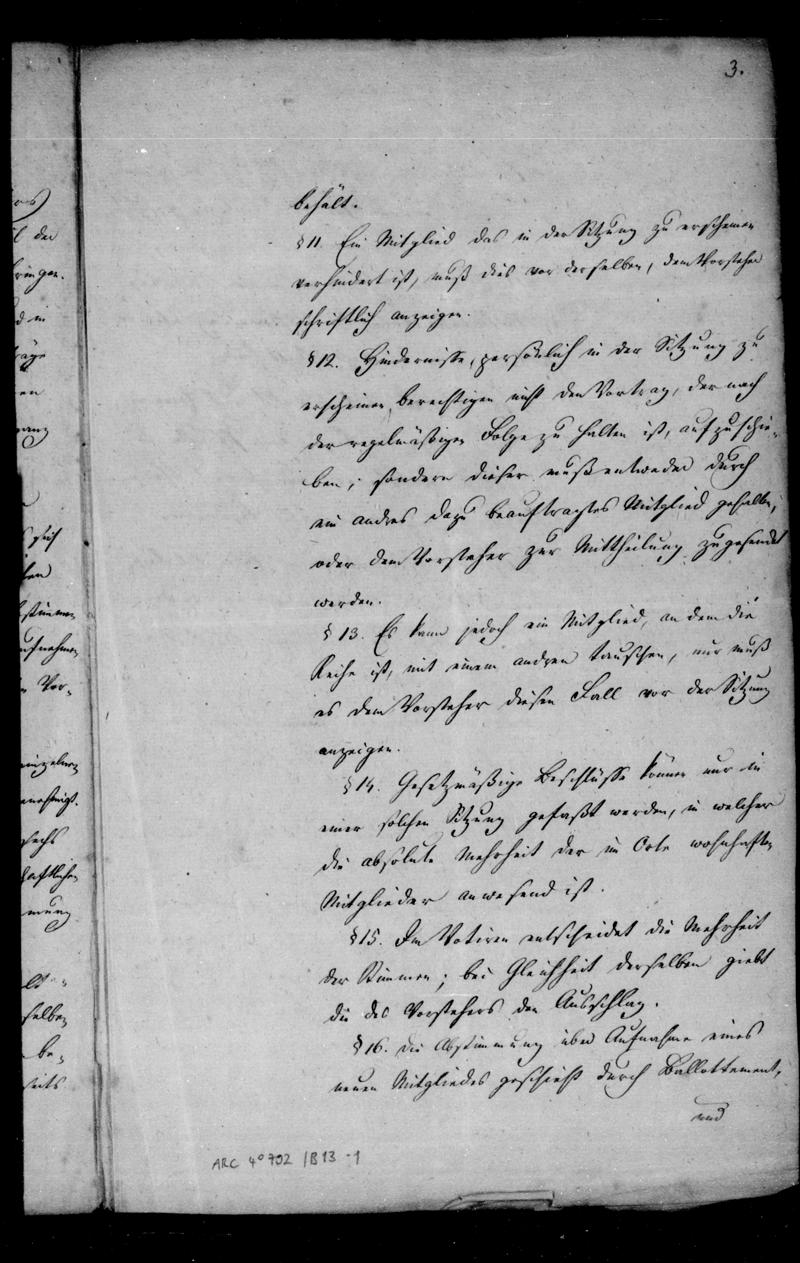 3.
behält.
§ 11. Ein Mitglied das in der Sitzung zu erscheinen
verhindert ist, muß dies vor derselben, dem Vorsteher
schriftlich anzeigen.
§ 12. Hindernisse, persönlich in der Sitzung zu
erscheinen, berechtigen nicht den Vortrag, der nach
der regelmäßigen Folge zu halten ist, aufzuschie-
ben; sondern dieser muß entweder durch
ein andres dazu beauftragtes Mitglied gehalten,
oder dem Vorsteher zur Mittheilung zugesendet
werden.
§ 13. Es kann jedoch ein Mitglied, an dem die
Reihe ist, mit einem andren tauschen, nur muß
es dem Vorsteher diesen Fall vor der Sitzung
anzeigen.
§ 14. Gesetzmäßige Beschlüsse können nur in
einer solchen Sitzung gefaßt werden, in welcher
die absolute Mehrheit der im Orte wohnhaften
Mitglieder anwesend ist.
§ 15. Im Votiren entscheidet die Mehrheit
der Stimmen; bei Gleichheit derselben giebt
die des Vorstehers den Ausschlag.
§ 16. Die Abstimmung über Aufnahme eines
neuen Mitgliedes geschieht durch Ballottement,
und
ARC 4° 792 /B13 -1